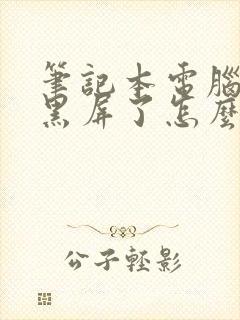 筆記本電腦
黑屏了怎麼
公子輕影